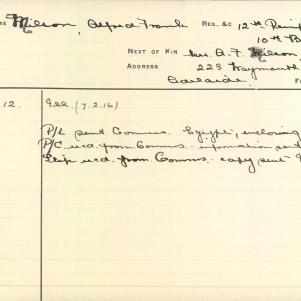 Milson, Alfred Frank REG. &C 12th Reinf
10th B
NEXT OF KIN Mrs A. F. Milson,
ADDRESS 223 Waymouth
Adelaide.
12. Ill. (7.2.16)
P/L sent Commrs. Egypt, enclosing
P/C recd. from Commrs. information sent
Slip recd. from Commrs. copy sent